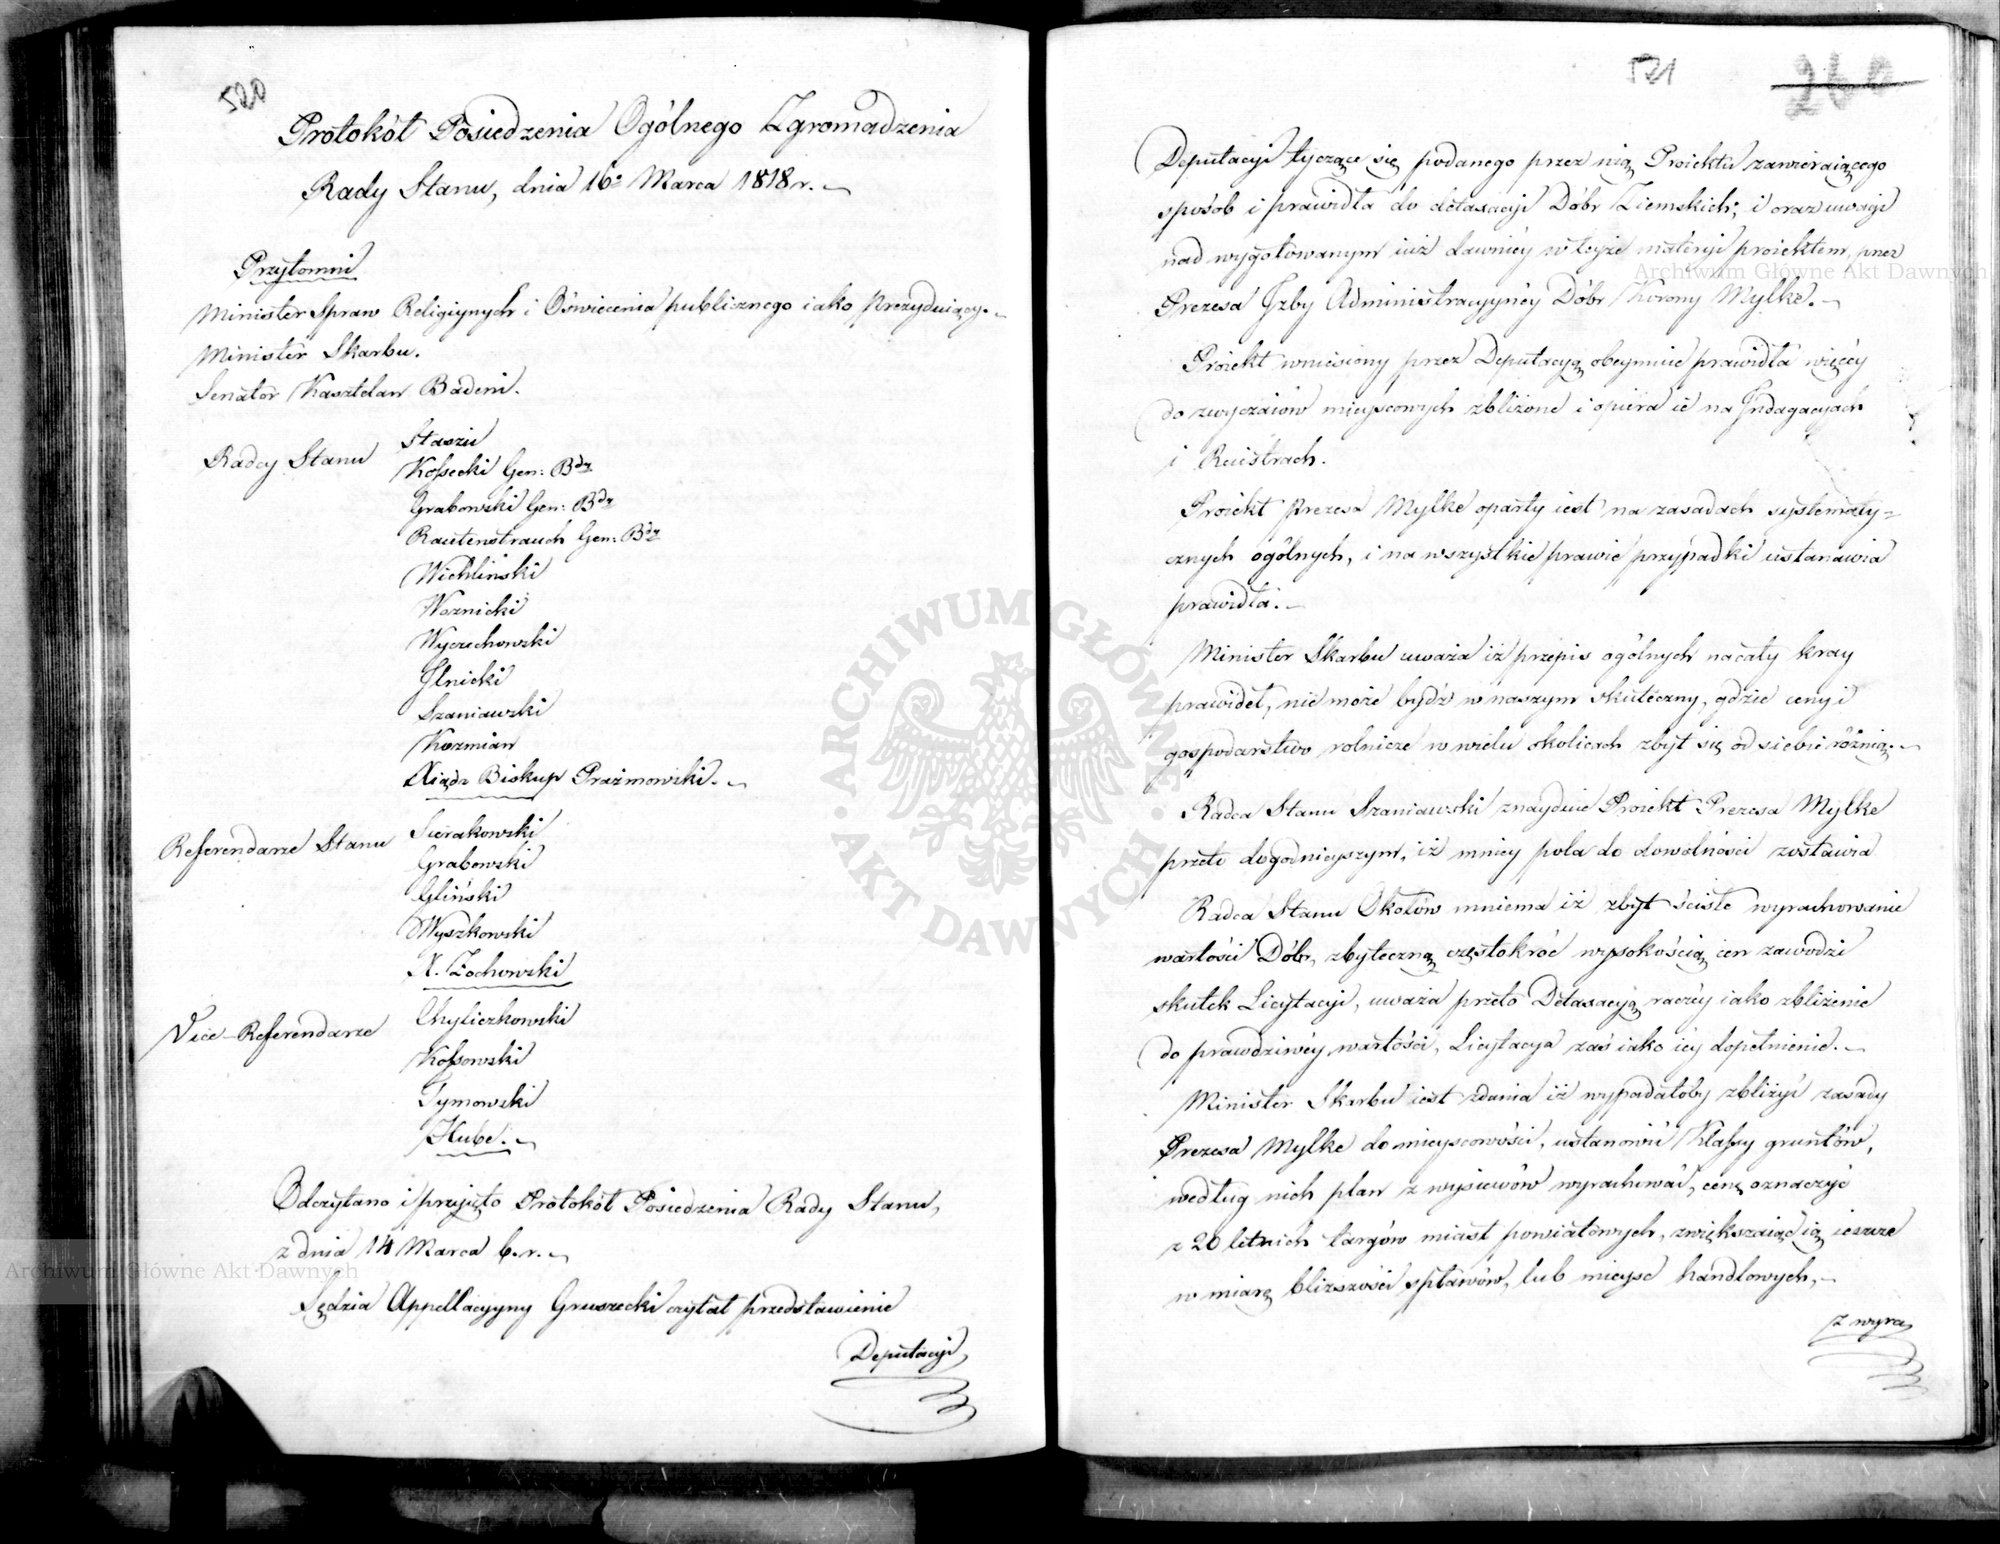 520
Protokół Posiedzenia Ogólnego Zgromadzenia
Rady Stanu, dnia 16º Marca 1818 r.
Przytomni
Minister Spraw Religiynych i Oświecenia publicznego iako Prezyduiący.
Minister Skarbu.
Senator Kasztelan Badeni.
Radcy Stanu
Staszic
Kossecki Gen: Bdy
Grabowski Gen: Bdy
Rautenstrauch Gen: Bdy
Wichliński
Woznicki
Wyczechowski
Jlnicki
Szaniawski
Kozmian
Xiądz Biskup Prażmowski.
Referendarze Stanu
Sierakowski
Grabowski
Gliński
Wyszkowski
X. Żochowski
Vice-Referendarze
Chyliczkowski
Kossowski
Tymowski
Hube.
Odczytano i przyięto Protokół Posiedzenia Rady Stanu,
z dnia 14 Marca b. r.
Sędzia Appellacyyny Gruszecki czytał przedstawienie
Deputacyi
521
260
Deputacyi tyczące się podanego przez nią Proiektu zawieraiącego
sposób i prawidła do detaxacyi Dóbr Ziemskich; i oraz uwagi
nad wygotowanym iuż dawniéy w teyże materyi proiektem, przez
Prezesa Jzby Administracyynéy Dóbr Korony Mylke.
Proiekt wniesiony przez Deputacyą obeymuie prawidła więcéy
do zwyczaiów mieyscowych zbliżone i opiera ie na Jndagacyach
i Reiestrach.
Proiekt Prezesa Mylke oparty iest na zasadach systematy=
cznych ogólnych, i na wszystkie prawie przypadki ustanawia
prawidła.
Minister Skarbu uważa iż przepis ogólnych na cały kray
prawideł, nie może bydź w naszym skuteczny, gdzie ceny i
gospodarstwo rolnicze w wielu okolicach zbyt się od siebie różnią.
Radca Stanu Szaniawski znayduie Proiekt Prezesa Mylke
przeto dogodnieyszym, iż mniéy pola do dowolności zostawia
Radca Stanu Okołów mniema iż zbyt ścisłe wyrachowanie
wartości Dóbr, zbyteczną częstokroć wysokością cen zawodzi
skutek Licytacyi, uważa przeto Detaxacyą raczéy iako zbliżenie
do prawdziwéy wartości, Licytacya zaś iako iéy dopełnienie.
Minister Skarbu iest zdania iż wypadałoby zbliżyć zasady
Prezesa Mylke do mieyscowości, ustanowić Klassy gruntów,
według nich plan z wysiewów wyrachować, cenę oznaczyć
z 20 letnich targów miast powiatowych, zwiększaiąc ią ieszcze
w miarę bliższości spławów, lub mieysc handlowych,
z wyra